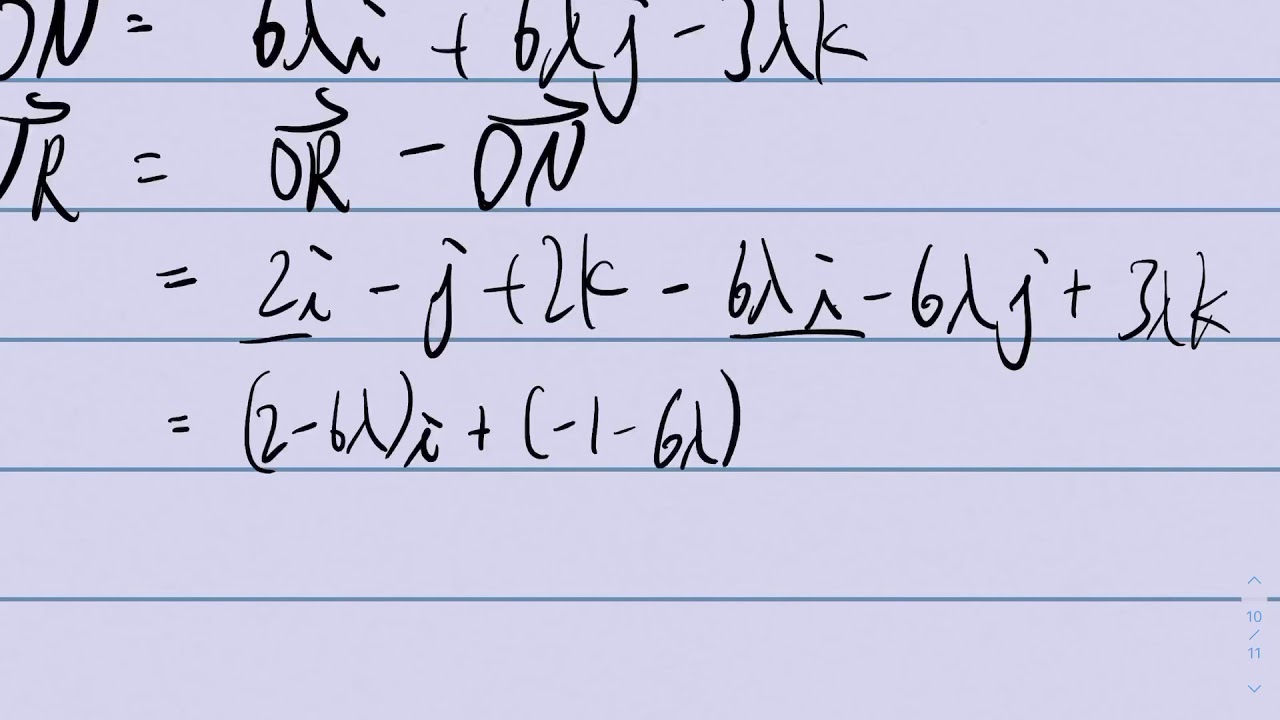 ON = 6λi + 6λj - 3λk
R = OR - ON
= 2i - j + 2k - 6λi - 6λj + 3λk
= (2-6λ)i + (-1-6λ)
10
/
11